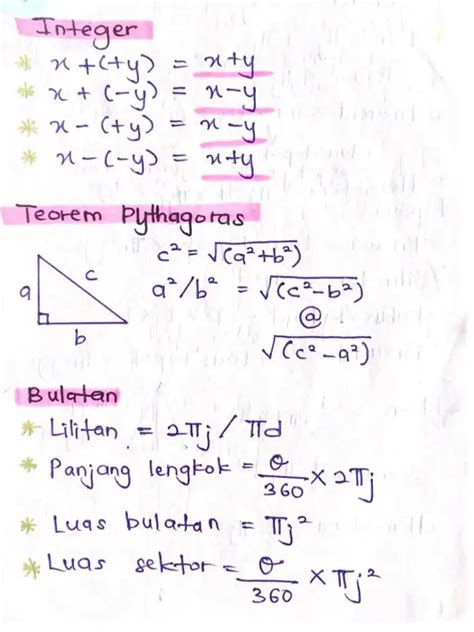 Integer
* x + (+y) = x+y
* x + (-y) = x-y
* x - (+y) = x-y
* x - (-y) = x+y
Teorem Pythagoras
c² = √(a²+b²)
a²/b² = √(c²-b²)
@
√(c²-a²)
a
c
b
Bulatan
* Lilitan = 2πj / πd
* Panjang lengkok = θ/360 × 2πj
* Luas bulatan = πj²
* Luas sektor = θ/360 × πj²